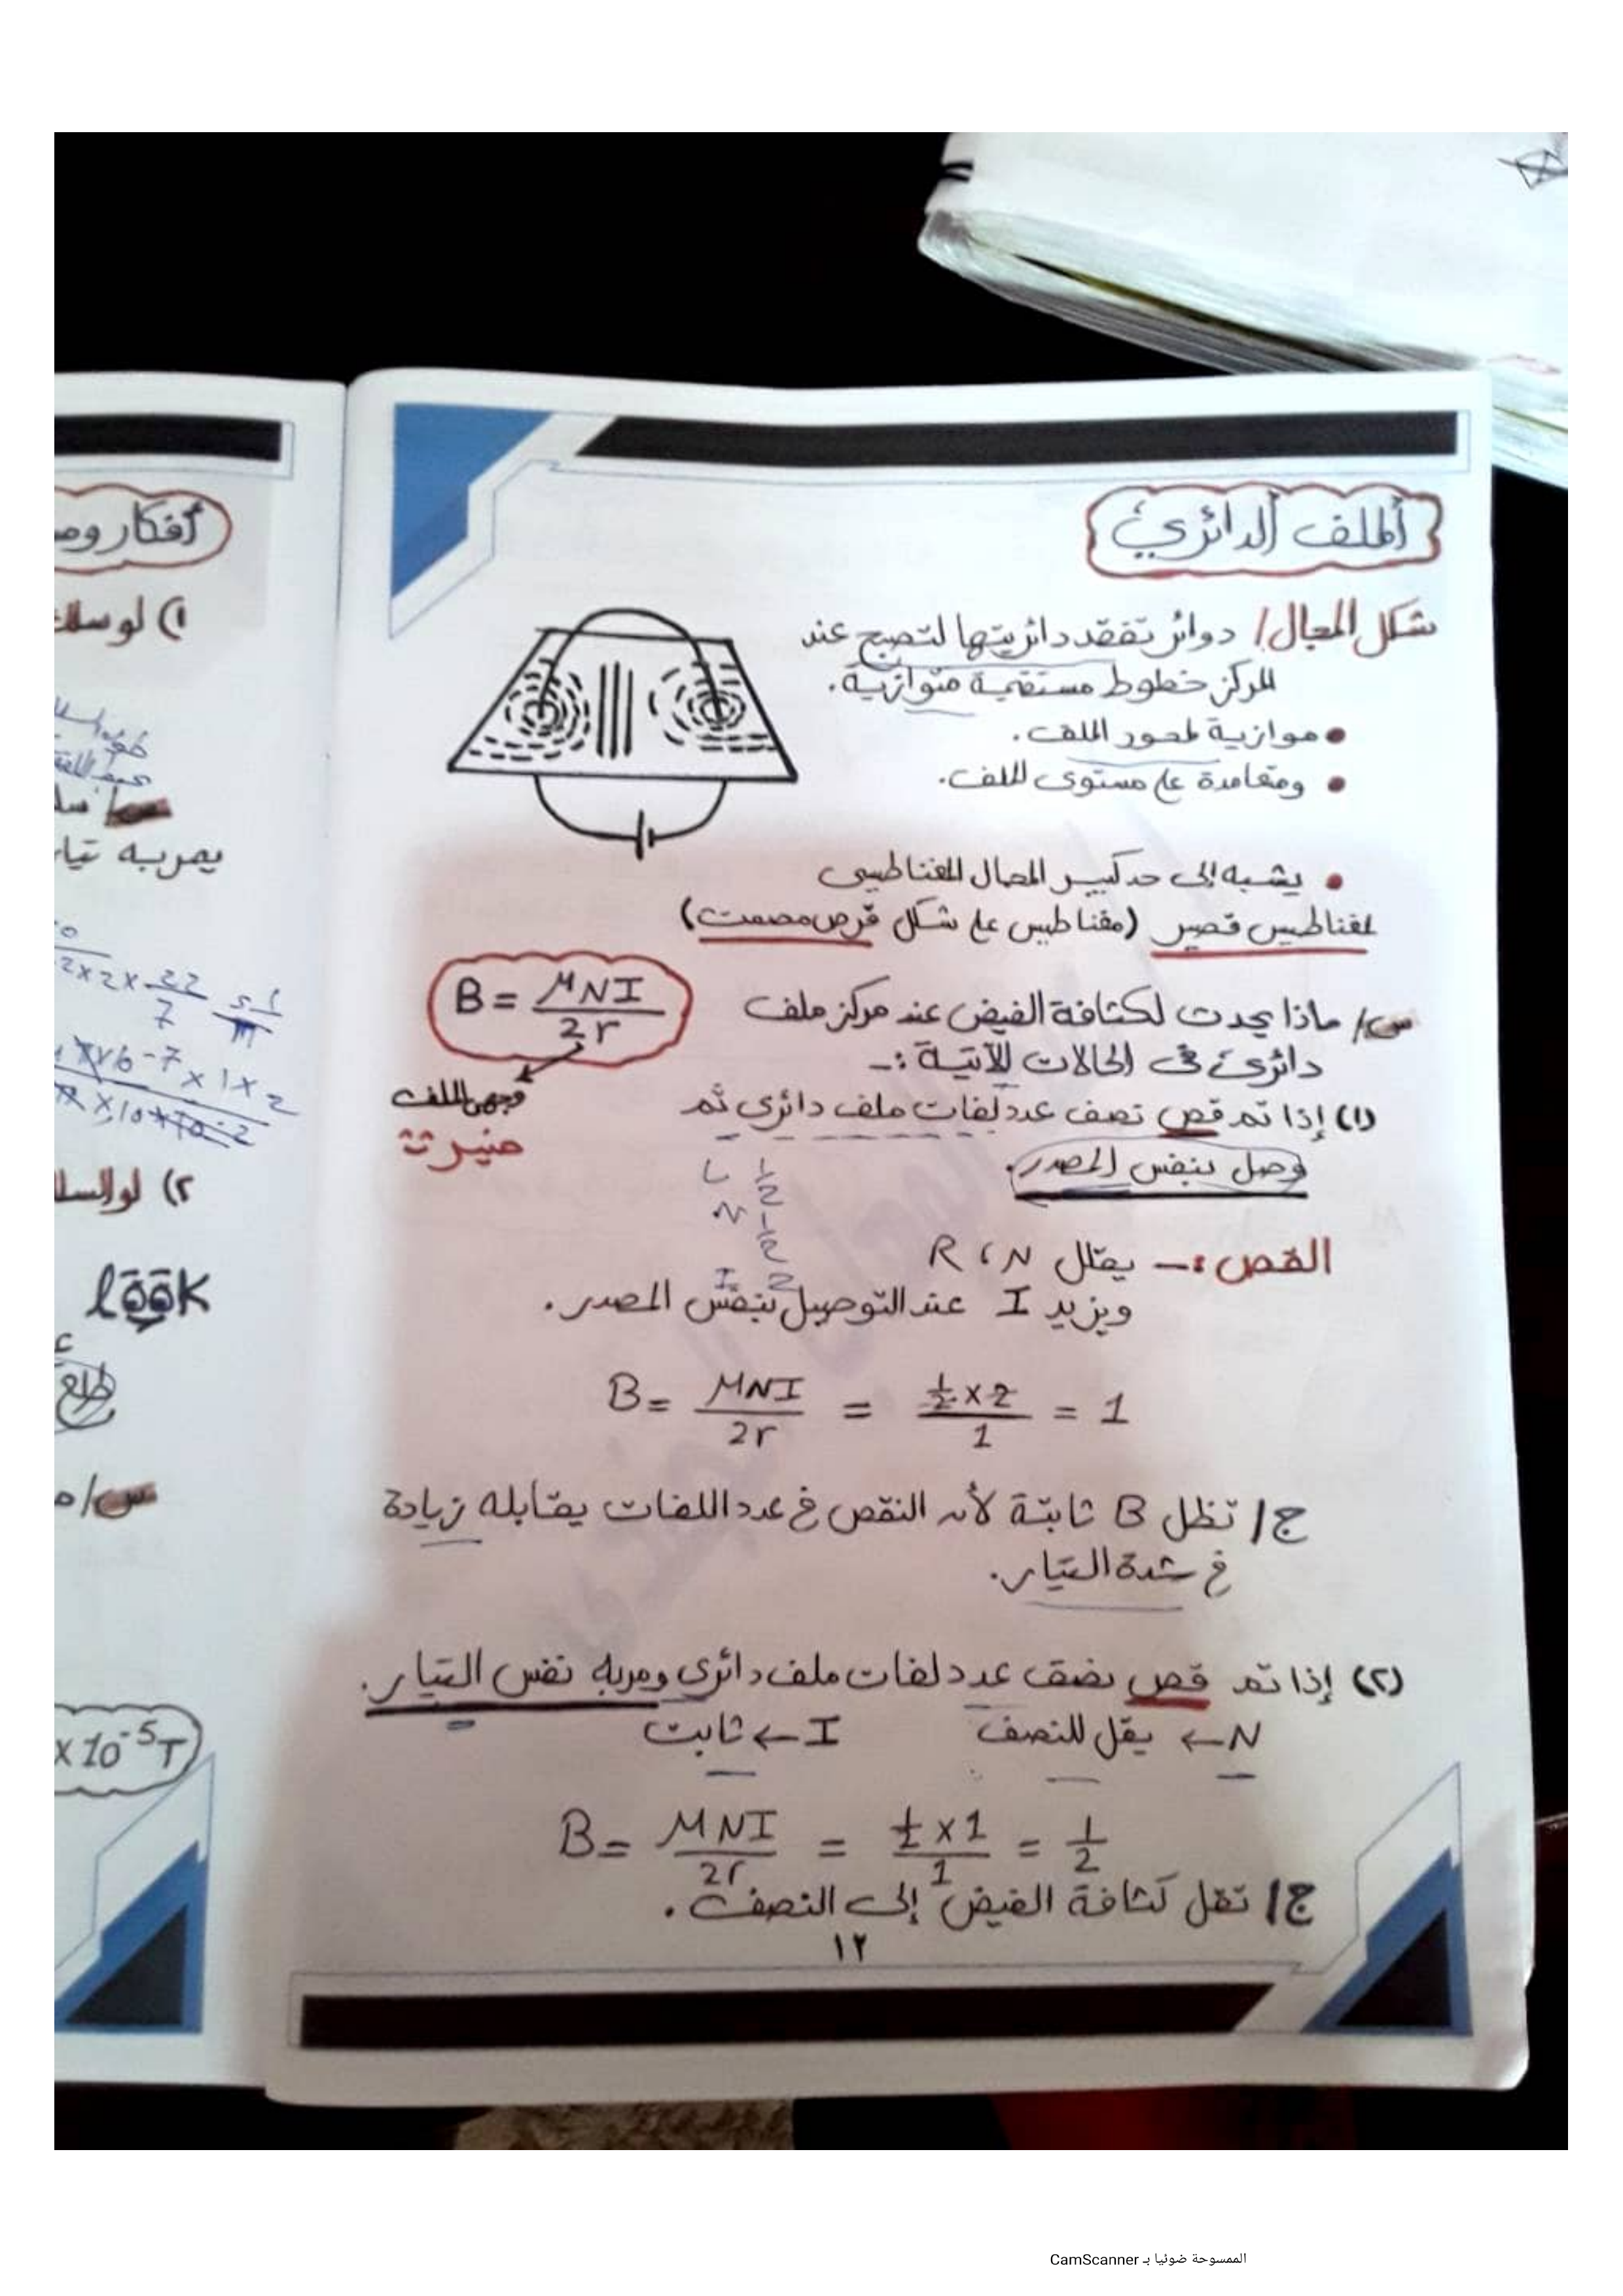 الملف الدائري
شكل المجال/ دوائر تفقد دائريتها لتصبح عند
المركز خطوط مستقيمة متوازية.
• موازية لمحور الملف.
• ومتعامدة على مستوى الملف.
• يشبه إلى حد كبير المجال المغناطيسى
لمغناطيس قصير (مغناطيس على شكل قرص مصمت)
B = μNI / 2r
س/ ماذا يحدث لكثافة الفيض عند مركز ملف
دائرى فى الحالات الآتية :-
(١) إذا تم قص نصف عدد لفات ملف دائرى ثم
وصل بنفس المصدر.
L 1/2
N 1/2
I 2
القص :- يقلل R ، N
ويزيد I عند التوصيل بنفس المصدر.
B = μNI / 2r = ½ × 2 / 1 = 1
ج/ تظل B ثابتة لأن النقص فى عدد اللفات يقابله زيادة
فى شدة التيار.
(٢) إذا تم قص نصف عدد لفات ملف دائرى ومر به نفس التيار.
N ← يقل للنصف I ← ثابت
B = μNI / 2r = ½ × 1 / 1 = 1/2
ج/ تقل كثافة الفيض إلى النصف.
١٢
أفكار
١) لو سلك
يمر به تيار
٢) لو السلك
lööK
س/
×10⁻⁵T
الممسوحة ضوئيا بـ CamScanner